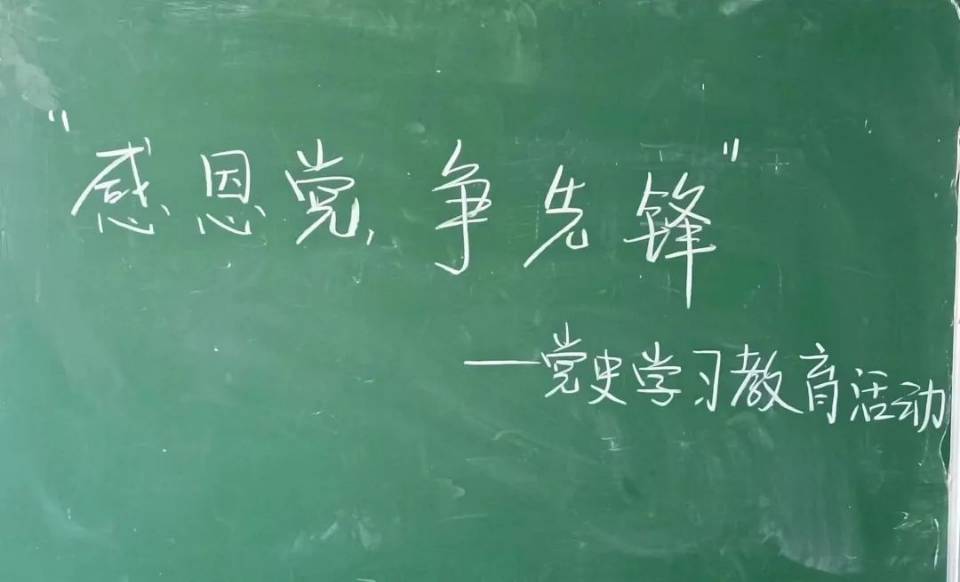 "感恩党,争先锋"
—党史学习教育活动